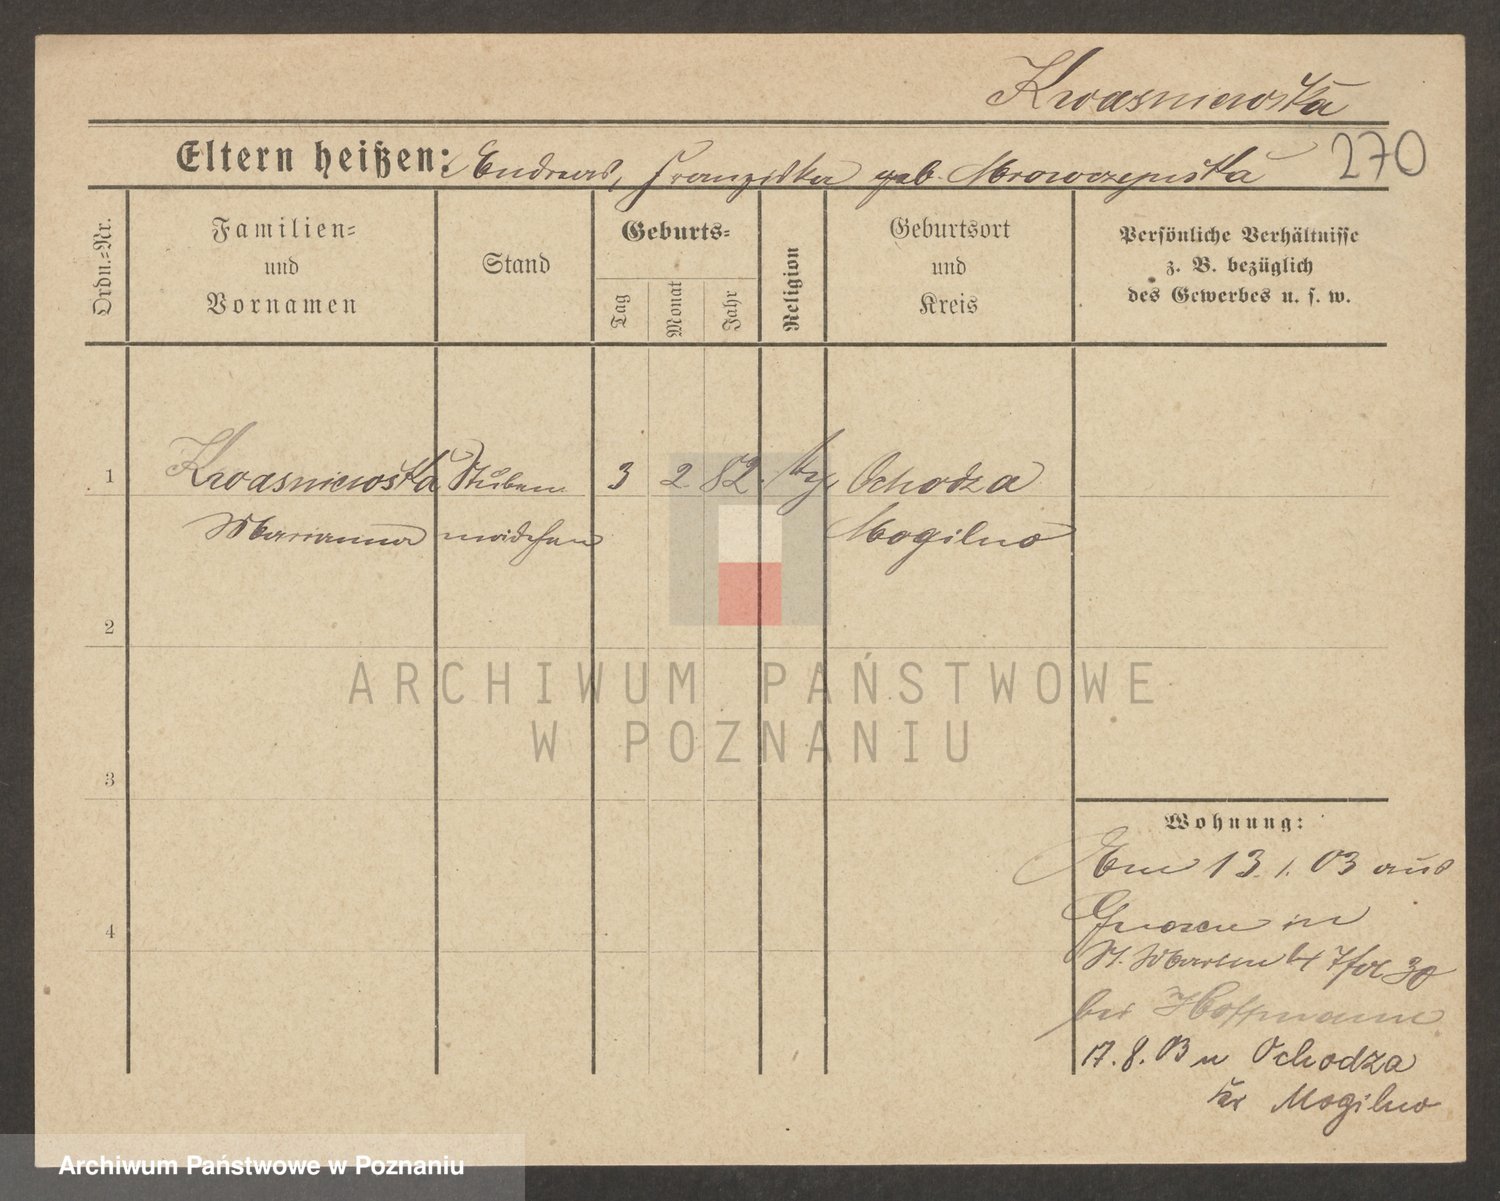 Kwasniewska
270
Eltern heißen: Andreas, Franziska geb. Mrowczynska
Ordn.-Nr.
Familien-
und
Vornamen
Stand
Geburts-
Tag
Monat
Jahr
Religion
Geburtsort
und
Kreis
Persönliche Verhältnisse
z. B. bezüglich
des Gewerbes u. s. w.
1 Kwasniewska Stuben 3 2 82. Ochodza
Marianna mädchen Mogilno
2
ARCHIWUM PAŃSTWOWE
W POZNANIU
3
Wohnung:
Am 13.1.03 aus
Gnesen in
4
St. Martin
bei Hoffmann
17.8.03 n Ochodza
Kr Mogilno
Archiwum Państwowe w Poznaniu